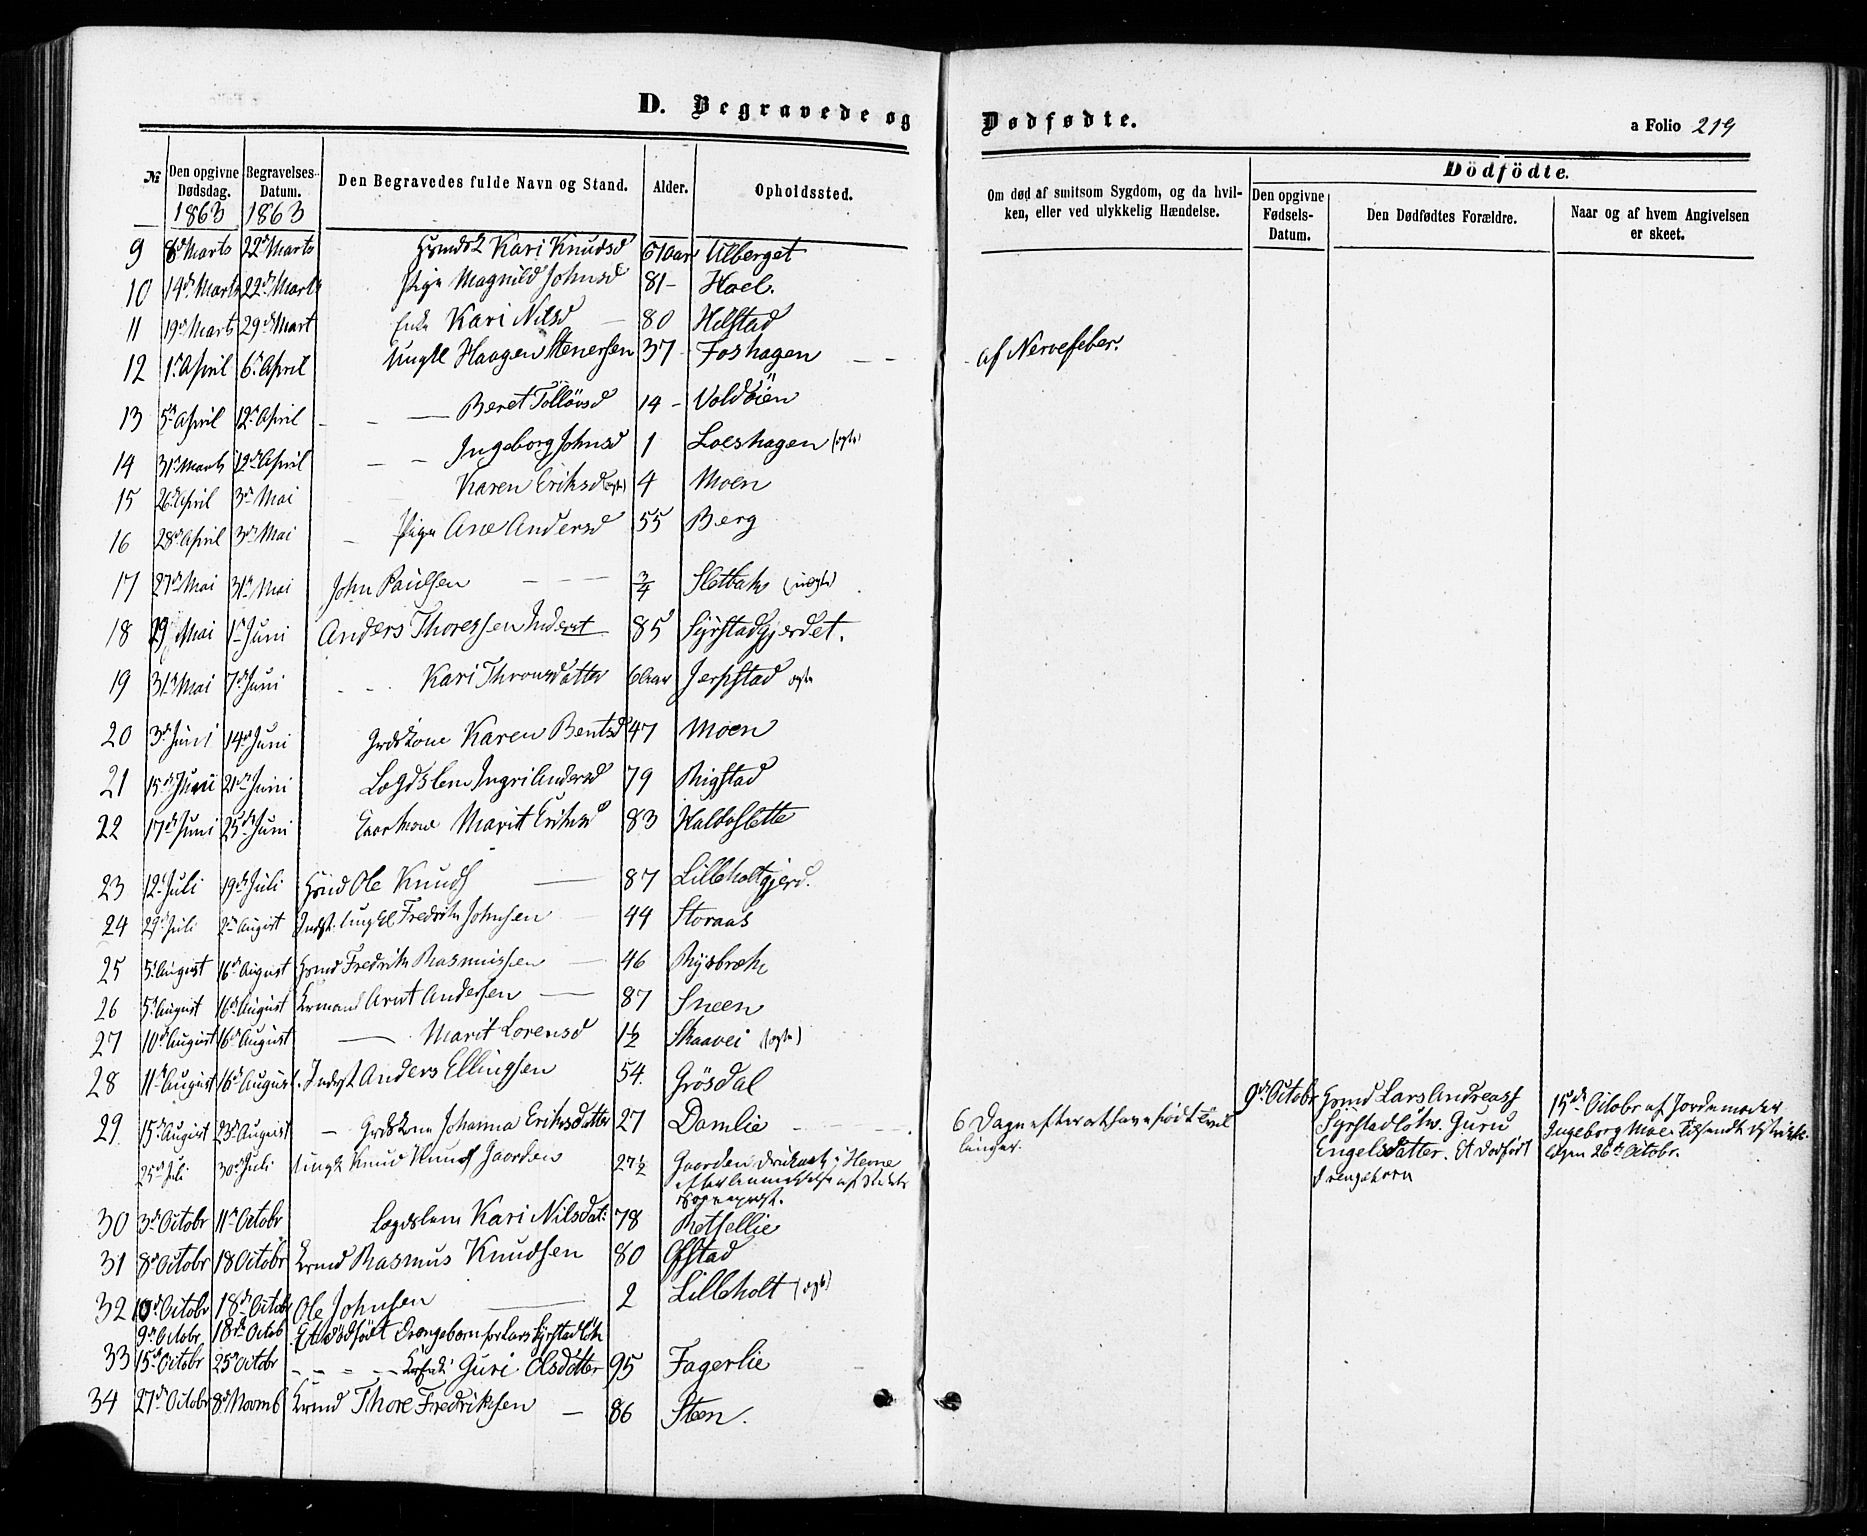 D. Begravede og
Dødfødte.
a Folio 219
№ Den opgivne Dødsdag. 1863 Begravelses-Datum. 1863 Den Begravedes fulde Navn og Stand. Alder. Opholdssted.
Om død af smitsom Sygdom, og da hvilken, eller ved ulykkelig Hændelse.
Dödfödte.
Den opgivne Fødsels-Datum. Den Dødfødtes Forældre. Naar og af hvem Angivelsen er skeet.
9 8d Marts 22d Marts Kari Knudsd Ulberget
10 14d Marts 22d Marts Pige Magnild Johnsd 81 - Hoel.
11 19d Marts 29d Mart Enke Kari Nilsd 80 Helstad
12 1s April 6s April Ungkl Haagen Stenersen 37 Foshagen — — af Nervefeber.
13 5s April 12s April — Beret Tollövsd 14 - Voldöien
14 31s Marts 12d April — Ingeborg Johnsd 1 Loeshagen (ægte)
15 26d April 3d Mai Karen Eriksd (ægte) 4 Moen
16 28d April 3d Mai Pige Ane Andersd 55 Berg
17 27d Mai 31s Mai John Paulsen — — — 3/4 Sletbak (uægte)
18 29 Mai 1s Juni Anders Thoressen Inderst 85 Syrstadgjerdet.
19 31s Mai 7d Juni Kari Thronsdatter 6 Aar Jerpstad ægte
20 3d Juni 14d Juni Grdskone Karen Bentsd 47 Moen
21 15d Juni 21d Juni Lægdslem Ingri Andersd 79 Rigstad
22 17d Juni 25d Juni Marit Eriksd 83 Kalvslette
23 12s Juli 19d Juli Ole Knuds — 87 Lilleholtgjerd.
24 29d Juli 2d August Indst. Ungkl Fredrik Johnsen 44 Storaas
25 5s August 16d August Fredrik Rasmussen — 46 Rysbræk
26 5s August 16d August Kaarmand Arnt Andersen — 87 Sneen
27 10d August 16d August — Marit Lorensd 1½ Skaavei (ægte)
28 11d August 16d August. Inderst Anders Ellingsen 54. Grösdal
29. 15d August 23d August — Grdskone Johanna Eriksdatter 27 Damlie
6 Dage efter at have födt Tvillinger.
25d Juli 30d Juli Ungk Knud Knuds Gaarden 27½ Gaarden druknet i Hevne
efter Anmeldelse af Stedets
Sognepræst.
9d Octobr Lars Andreass
Syrstadlök. Guru
Engelsdatter. Et dödfödt
Drengebarn
15d Octobr af Jordemoder
Ingeborg Moe
26d Octobr.
30 3d Octobr 11s Octobr Lægdslem Kari Nilsdat: 78 Retsellie
31 8d Octobr 18 Octobr Rasmus Knudsen 80 Ofstad
32 10d Octobr 18d Octobr Ole Johnsen — 2 Lilleholt (ægte)
9d Octobr. 18d Octob Et dödfödt Drengebarn for Lars Syrstadlök
33 15d Octobr 25d Octobr Guri Olsdatter 95 Fagerlie
34 27d Octobr 8d Novmb Thore Fredriksen — 86 Steen.